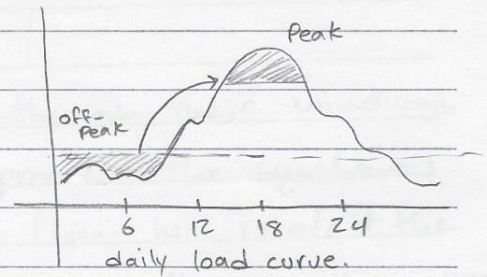 Peak
off-
Peak
6 12 18 24
daily load curve.